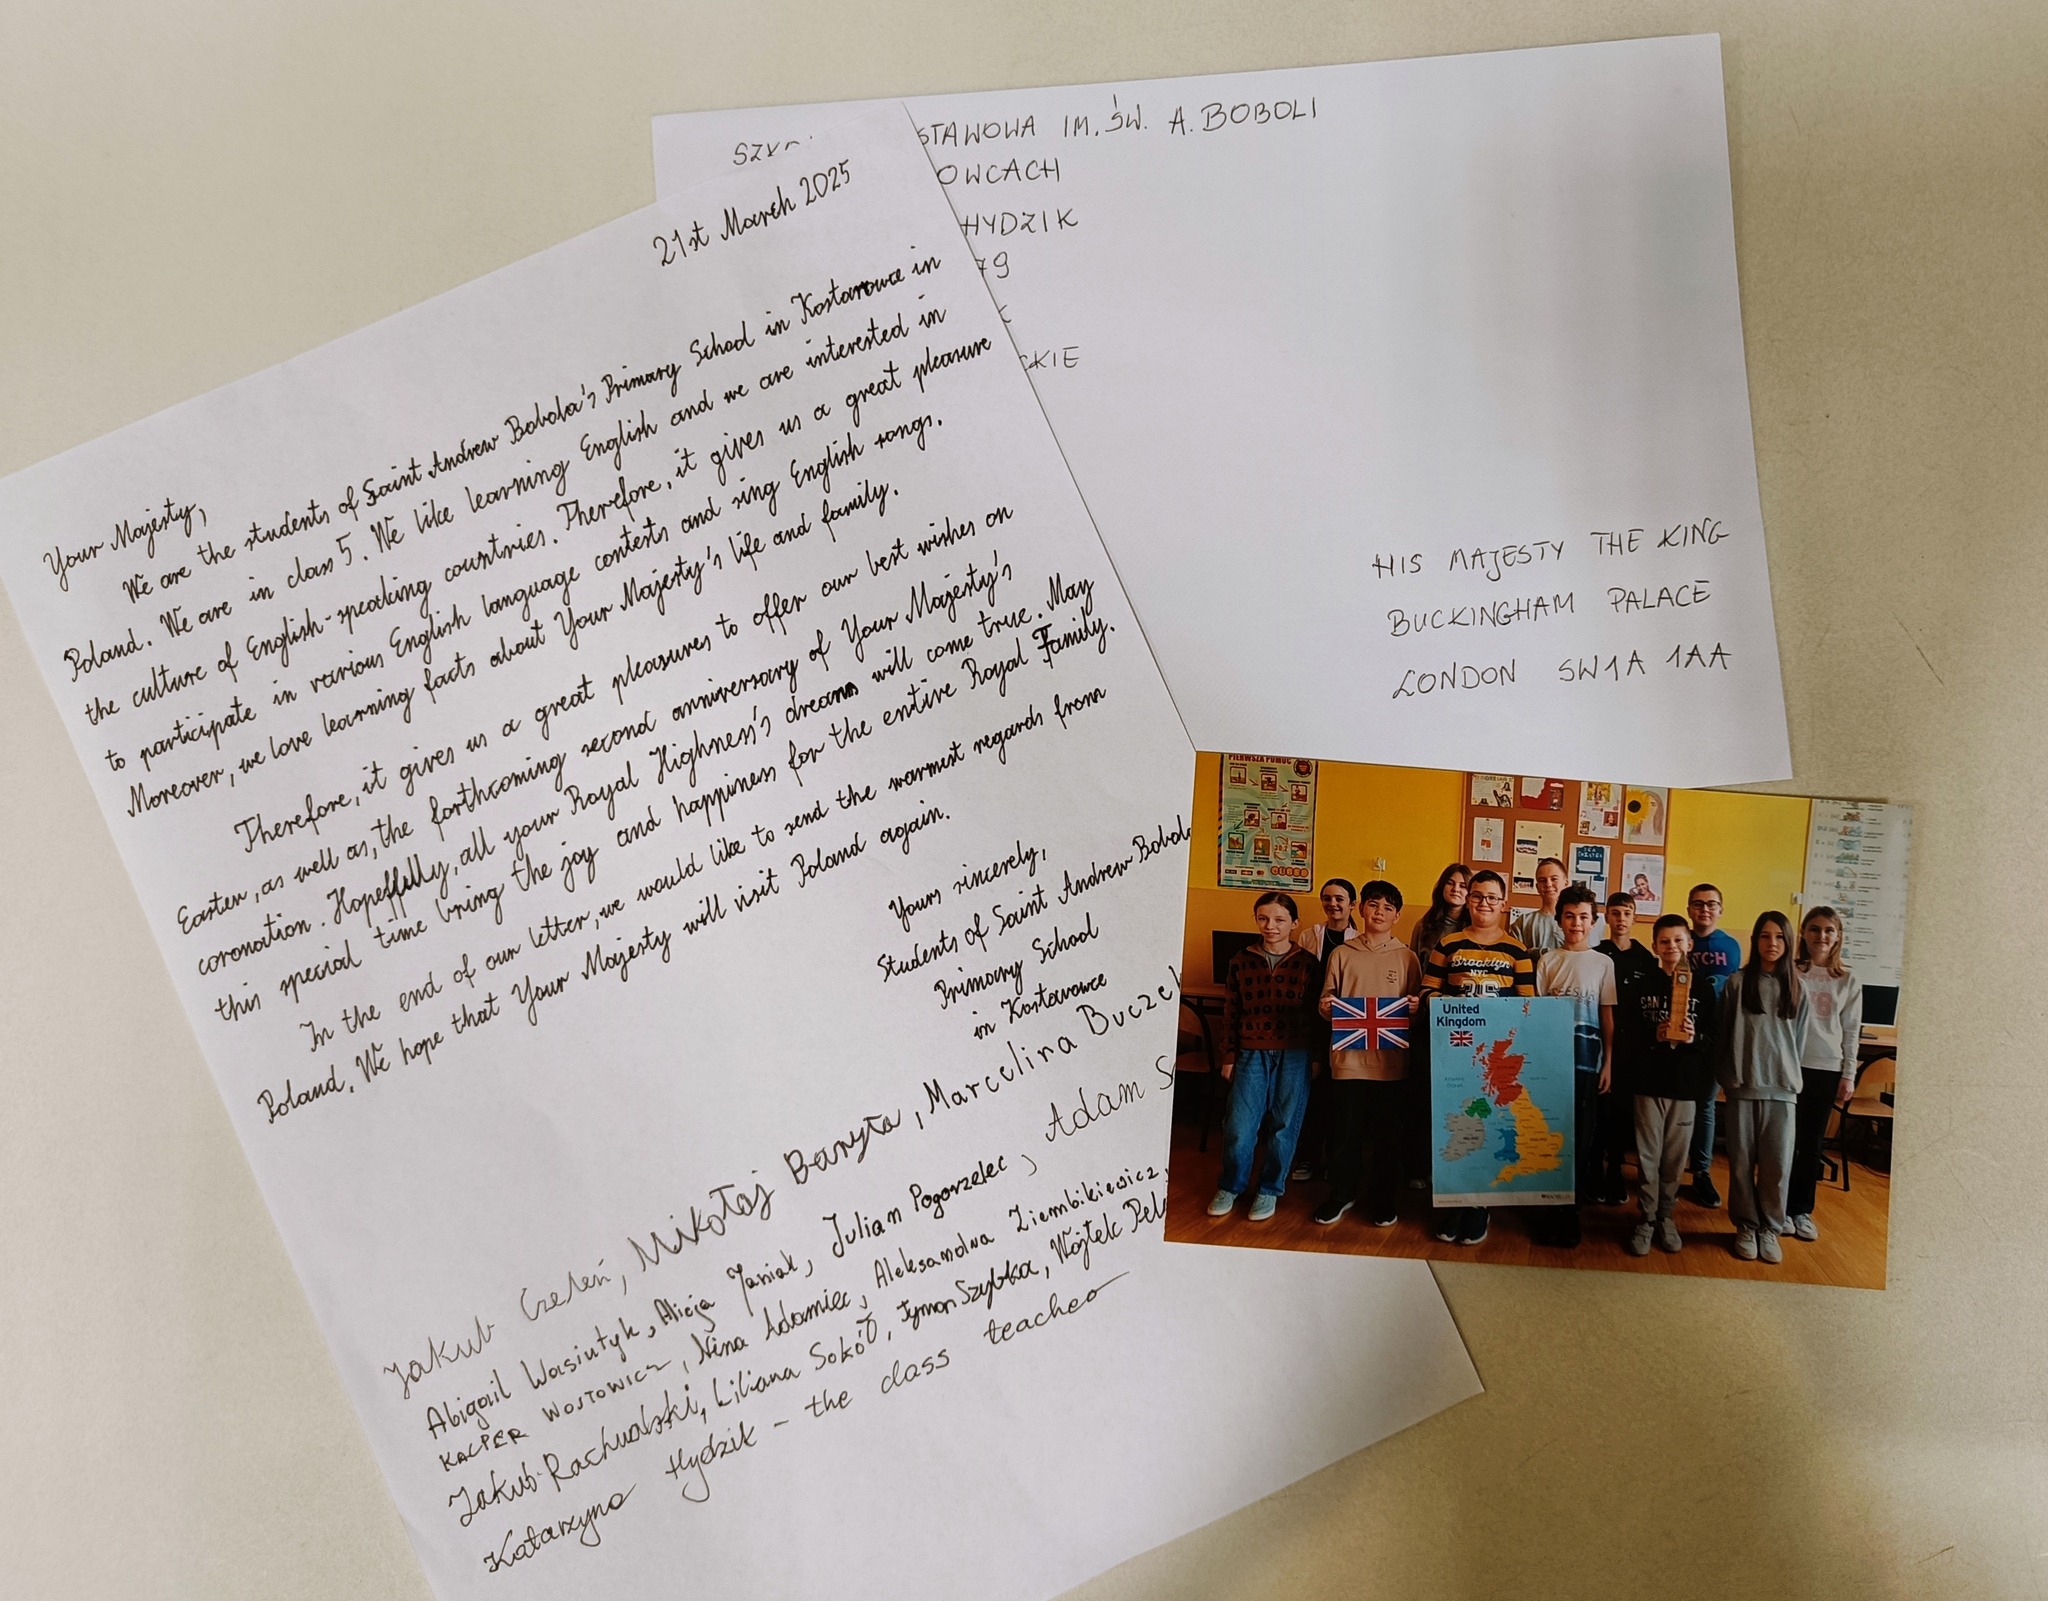 21st March 2025
Your Majesty,
We are the students of Saint Andrew Bobola's Primary School in Kostarowce in
Poland. We are in class 5. We like learning English and we are interested in
the culture of English-speaking countries. Therefore, it gives us a great pleasure
to participate in various English language contests and sing English songs.
Moreover, we love learning facts about Your Majesty's life and family.
Therefore, it gives us a great pleasures to offer our best wishes on
Easter, as well as, the forthcoming second anniversary of Your Majesty's
coronation. Hopeffully, all your Royal Highness's dreams will come true. May
this special time bring the joy and happiness for the entire Royal Family.
In the end of our letter, we would like to send the warmest regards from
Poland. We hope that Your Majesty will visit Poland again.
Yours sincerely,
Students of Saint Andrew Bobola
Primary School
in Kostarowce
Jakub Czeleń, Mikołaj Baryła, Marcelina Bucze
Abigail Wasiutyk, Alicja Janiak, Julian Pogorzelec, Adam
KACPER WOSTOWICZ, Nina Adamiec, Aleksandra Ziembikiewicz,
Jakub Rachwalski, Liliana Sokół, Tymon Szybka, Wojtek
Katarzyna Hydzik - the class teacher
STAWOWA IM. ŚW. A. BOBOLI
OWCACH
HYDZIK
79
CKIE
HIS MAJESTY THE KING
BUCKINGHAM PALACE
LONDON SW1A 1AA
PIERWSZA POMOC
Brooklyn
NYC
United
Kingdom